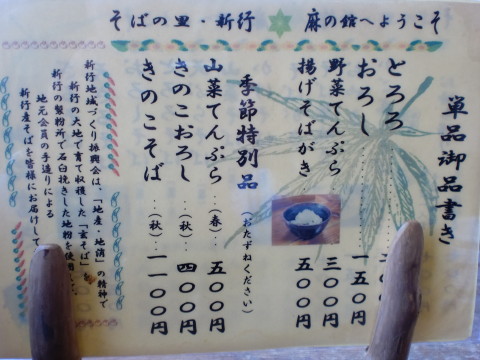 そばの里・新行 麻の館へようこそ
単品御品書き
とろろ
おろし 一五〇円
野菜てんぷら 五〇〇円
揚げそばがき 五〇〇円
季節特別品 (おたずねください)
山菜てんぷら ‥(春)‥ 五〇〇円
きのこおろし ‥(秋)‥ 四〇〇円
きのこそば ‥(秋)‥ 一一〇〇円
新行地域づくり振興会は、「地産・地消」の精神で
新行の大地で育て収穫した「玄そば」を
新行の製粉所で石臼挽きした地物を使用した
地元会員の手造りによる
新行産そばを皆様にお届けして